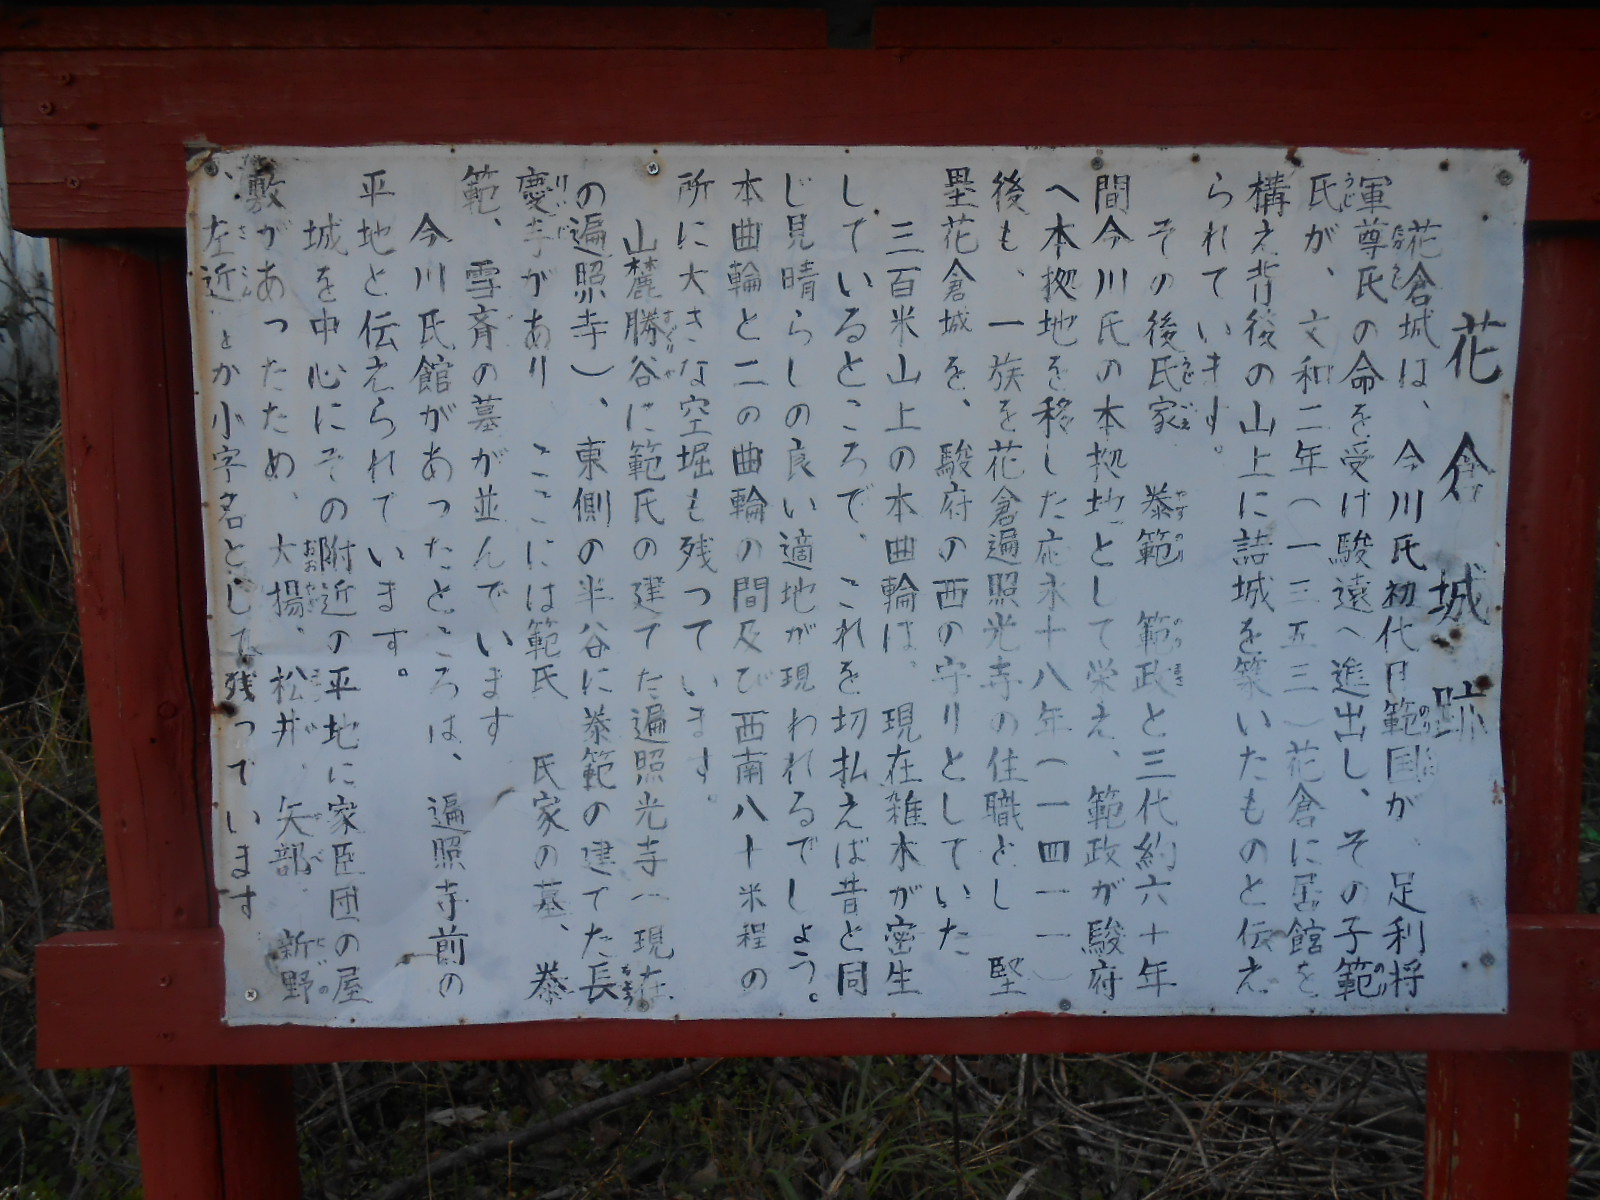 花倉城跡
花倉城は、今川氏初代目範国が、足利将
軍尊氏の命を受け駿遠へ進出し、その子範
氏が、文和二年(一三五三)花倉に居館を
構え背後の山上に詰城を築いたものと伝え
られています。
その後氏家 泰範 範政と三代約六十年
間今川氏の本拠地として栄え、範政が駿府
へ本拠地を移した応永十八年(一四一一)
後も、一族を花倉遍照光寺の住職とし 堅
塁花倉城を、駿府の西の守りとしていた
三百米山上の本曲輪は、現在雑木が密生
しているところで、これを切払えば昔と同
じ見晴らしの良い適地が現われるでしょう。
本曲輪と二の曲輪の間及び西南八十米程の
所に大きな空堀も残っています。
山麓勝谷に範氏の建てた遍照光寺(現在
の遍照寺)、東側の半谷に泰範の建てた長
慶寺があり ここには範氏 氏家の墓、泰
範、雪斉の墓が並んでいます
今川氏館があったところは、遍照寺前の
平地と伝えられています。
城を中心にその附近の平地に家臣団の屋
敷があったため、大楊、松井、矢部 新野
、左近とか小字名として残っています